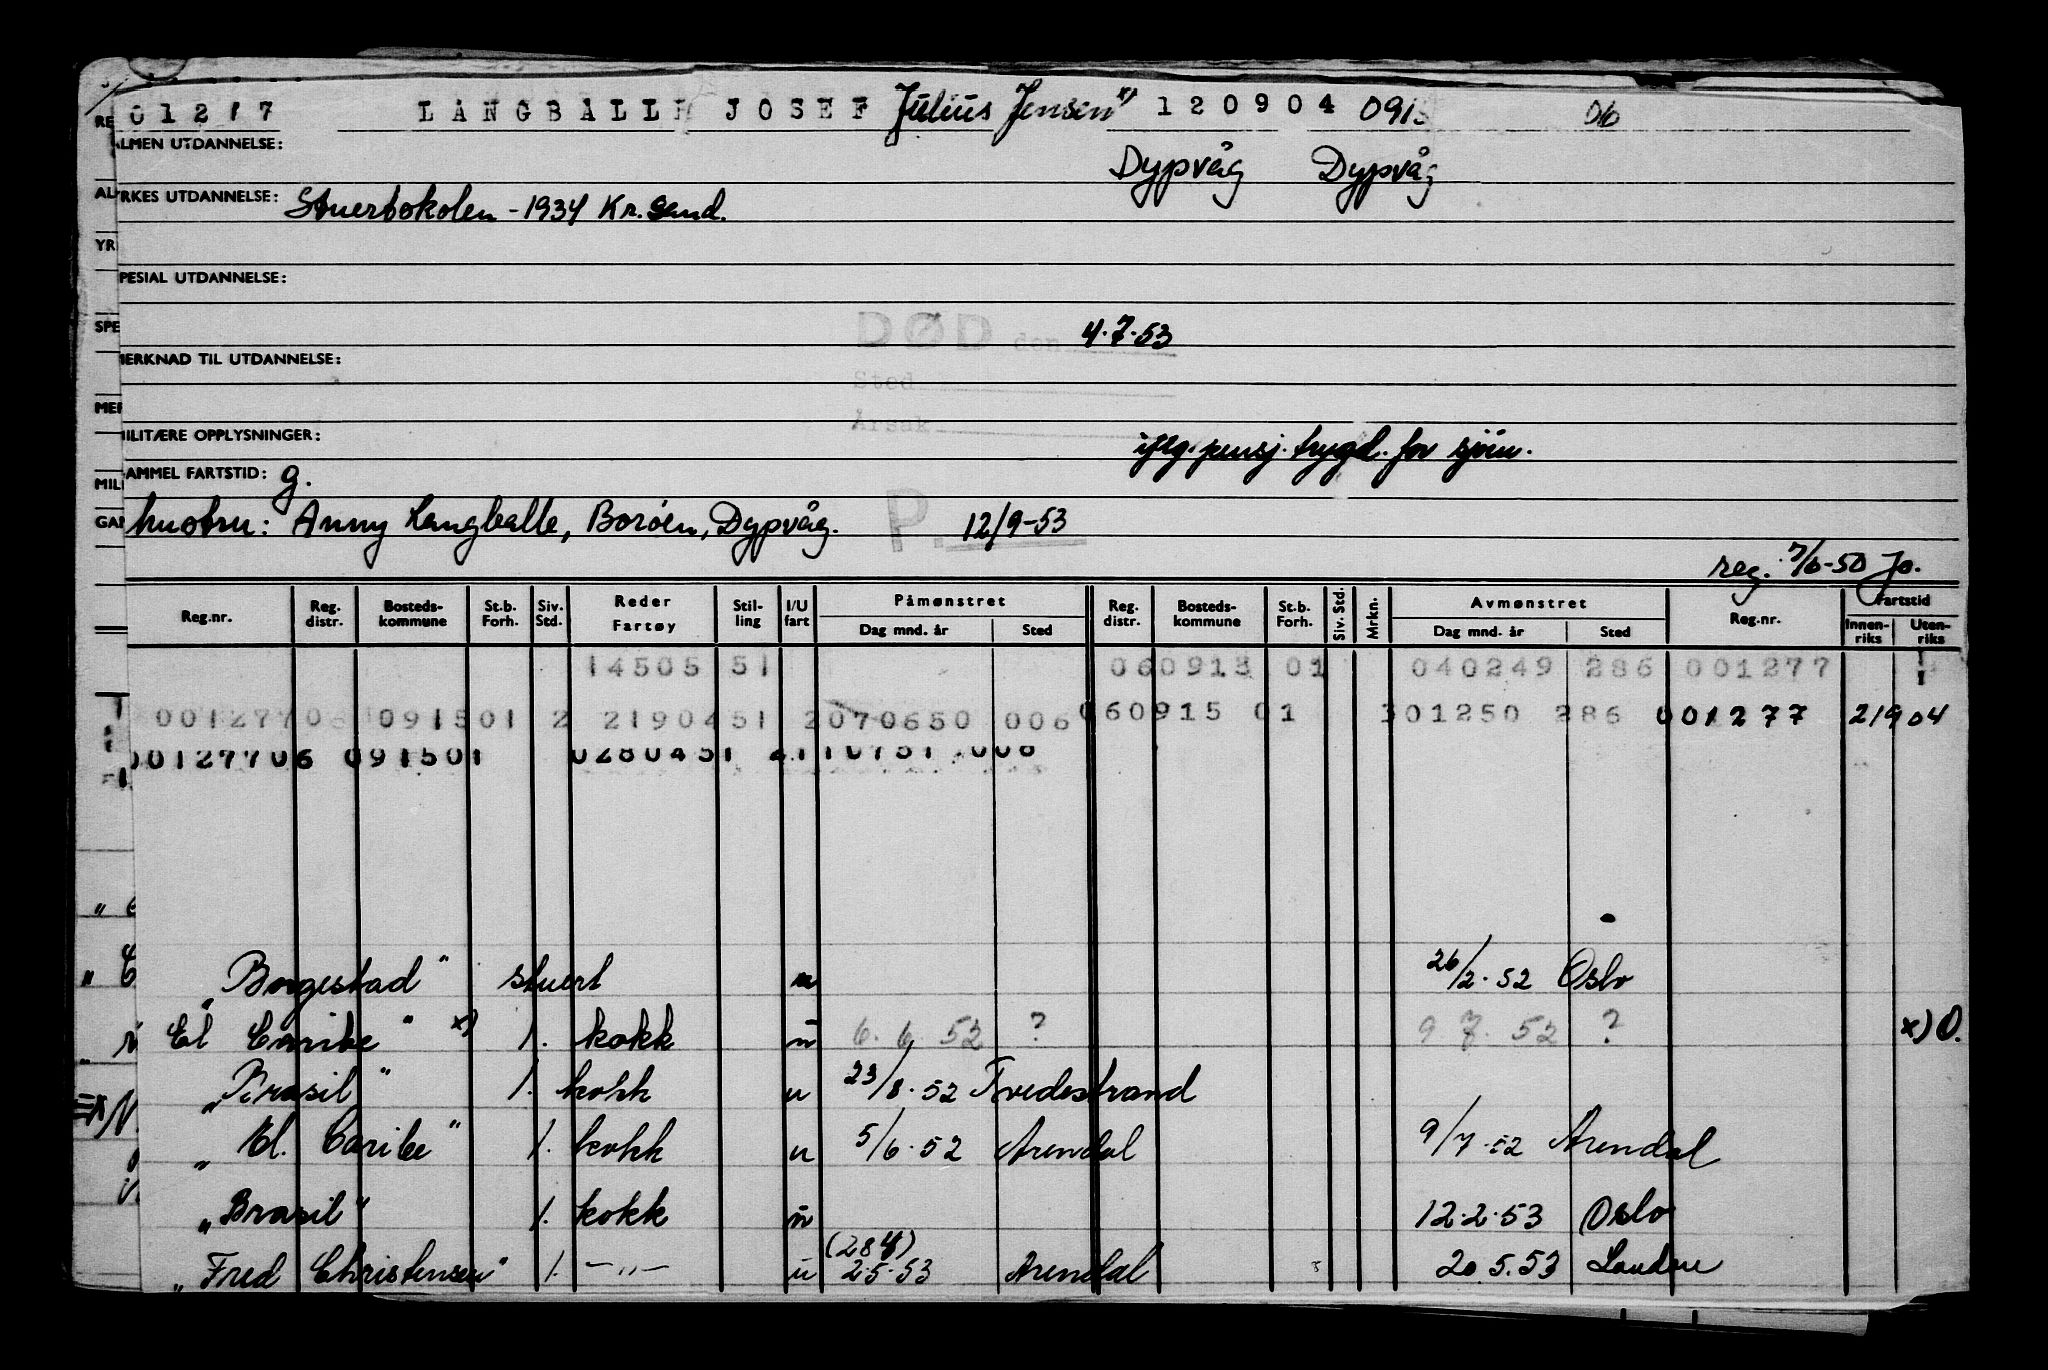 01277 LANGBALLE JOSEF Julius Jensen x) 120904 0915 06
ALMEN UTDANNELSE: Dypvåg Dypvåg
YRKES UTDANNELSE: Stuertskolen - 1934 Kr.sand.
SPESIAL UTDANNELSE:
DØD den 4.7.53
MERKNAD TIL UTDANNELSE:
Sted
Årsak
MILITÆRE OPPLYSNINGER: iflg. pensj. trygd. for sjøm.
GAMMEL FARTSTID: g.
hustru: Anny Langballe, Borøen, Dypvåg. P. 12/9-53
reg. 7/6-50 Jo.
Reg.nr. Reg. distr. Bosteds-kommune St.b. Forh. Siv. Std. Reder Fartøy Stil-ling I/U fart Påmønstret Dag mnd. år Sted Reg. distr. Bosteds-kommune St.b. Forh. Siv. Std. Mrkn. Avmønstret Dag mnd. år Sted Reg.nr. Fartstid Innen-riks Uten-riks
14505 51 060913 01 040249 286 001277
00127706 091501 2 2190451 2070650 006 060915 01 301250 286 001277 21904
00127706 091501 0280451 2110751 006
"Borgestad" stuert u 26/2.52 Oslo
"El Caribe" x) 1. kokk u 6.6.52 ? 9 7.52 ? x) O.
"Brasil" 1. kokk u 23/8.52 Tvedestrand
"El. Caribe" 1. kokk u 5/6.52 Arendal 9/7.52 Arendal
"Brasil" 1. kokk u 12.2.53 Oslo
"Fred Christensen" 1. -"- u (28 4) 2.5.53 Arendal 20.5.53 London